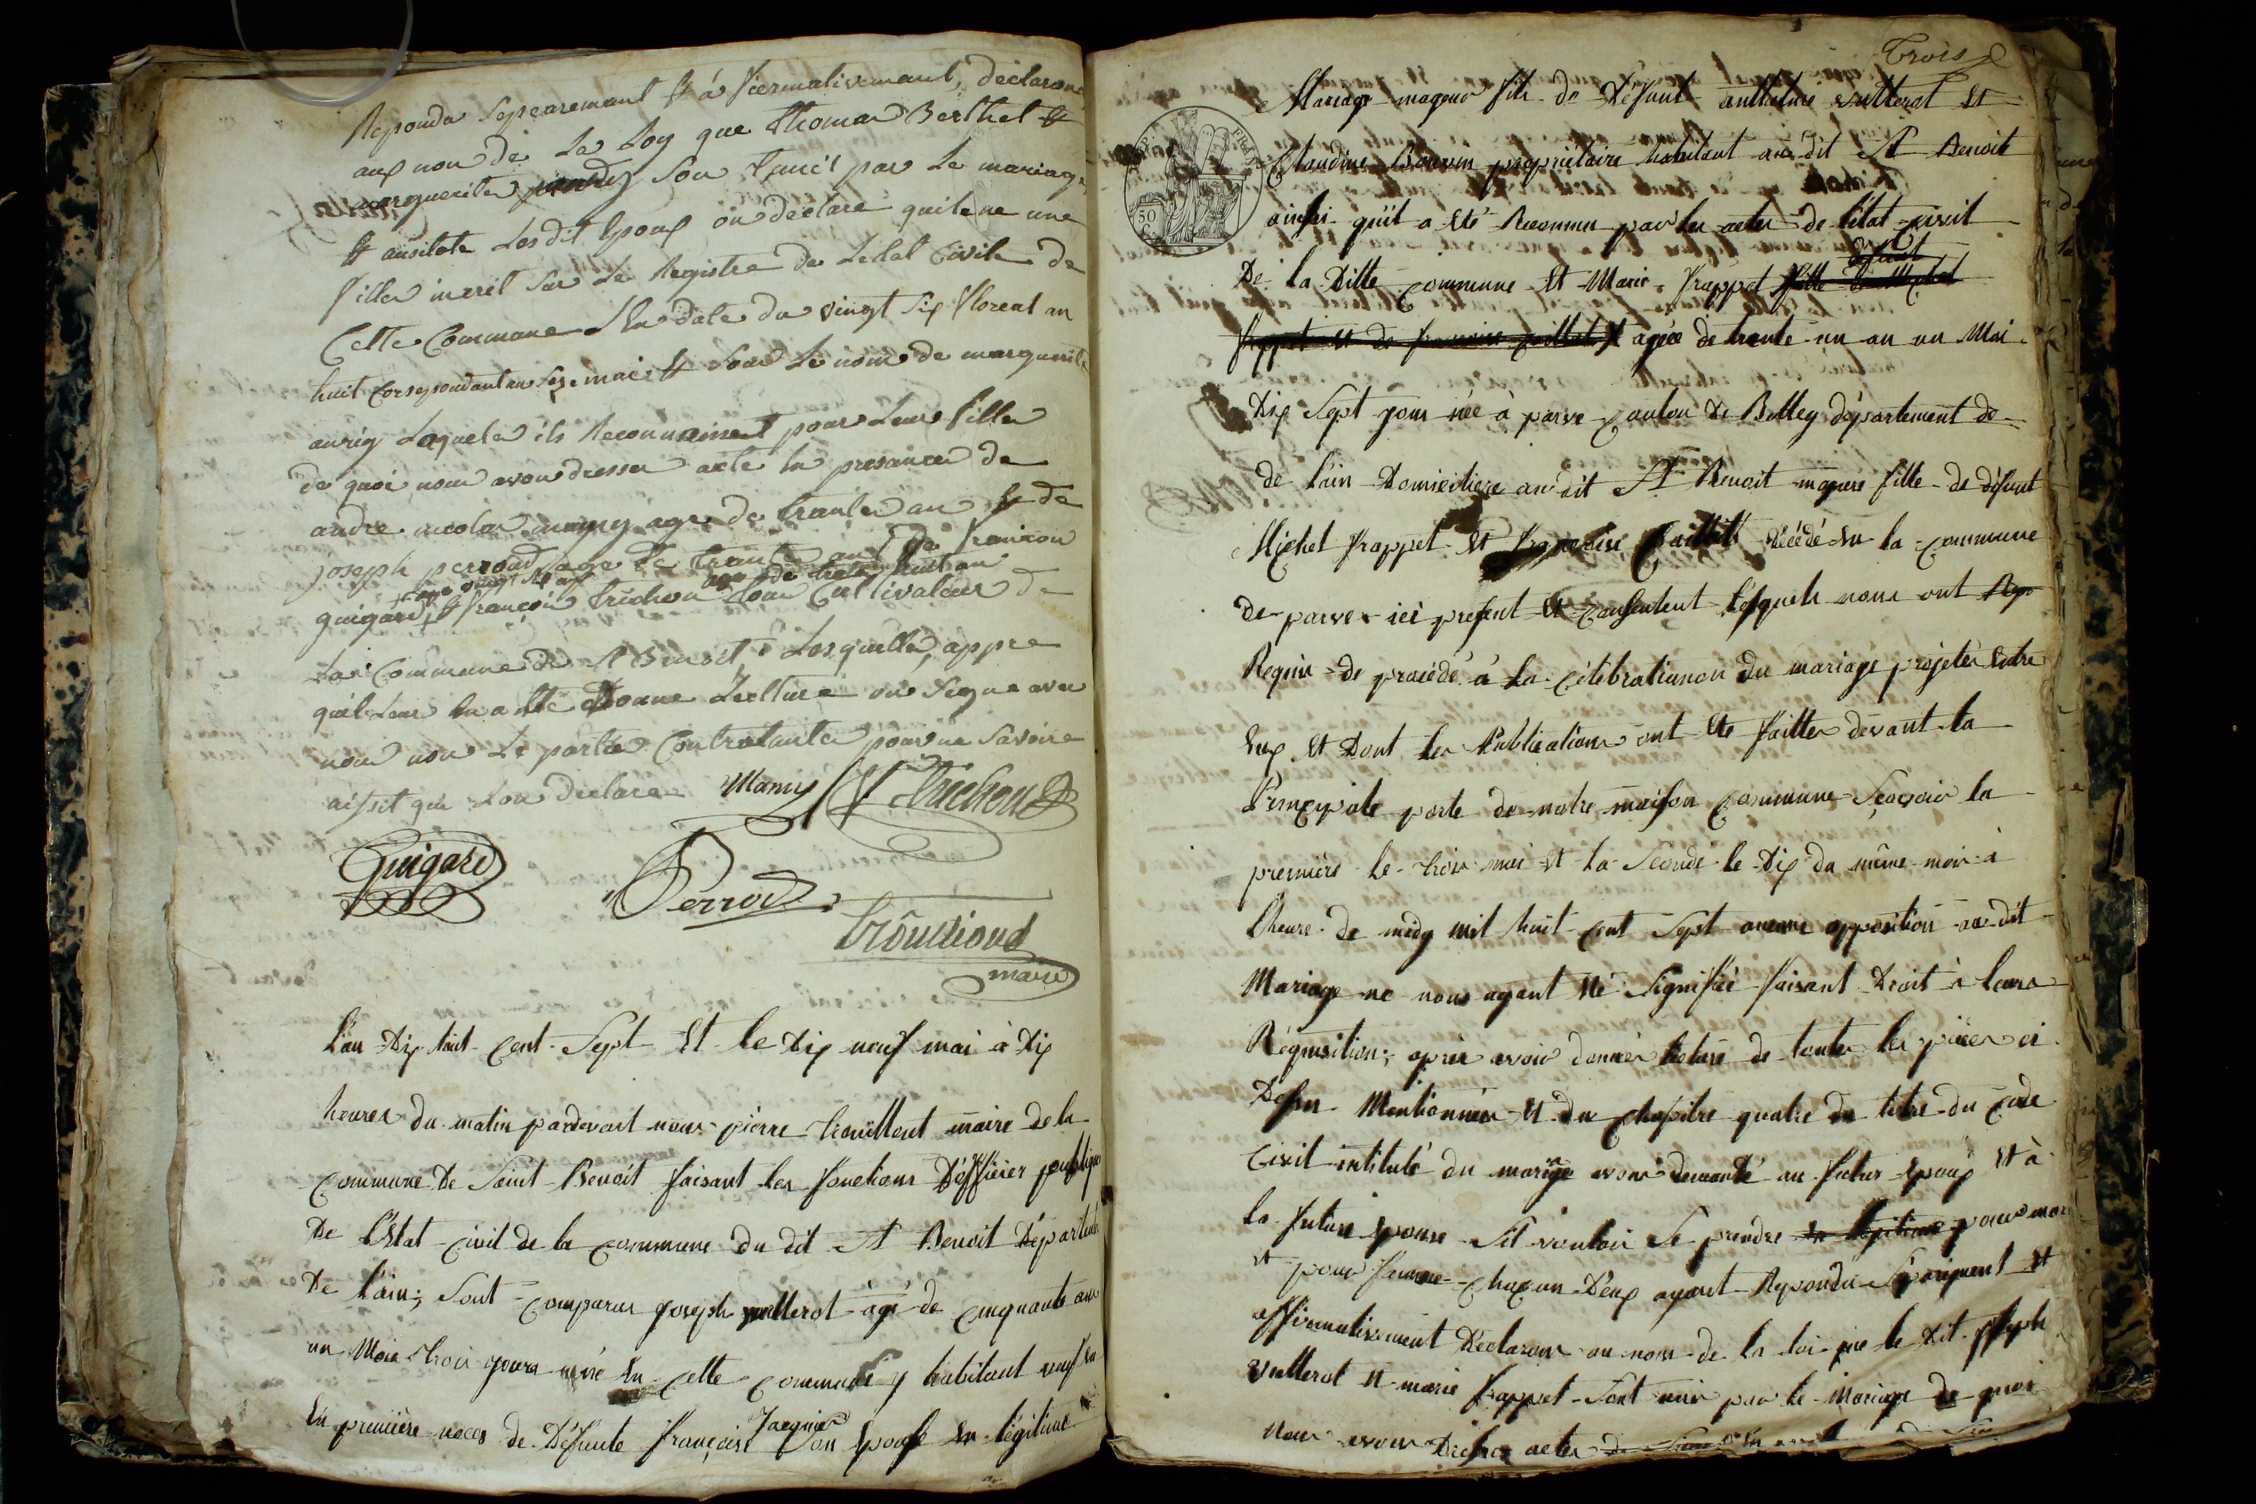 Reponda Sepearemant & á fiermativemant, declarons
aux non de La Loy que Thomas Berthet &
marguerite Son Unis par Le mariage
& ausitote Lesdit Epoux on declare quile ne une
fille incrit Sur Le Registre de Letat Civile de
Cette Commune En date du vingt Six floreal an
huit Correspondant au Seze mai & Sous Le nom de marguerite
Laquele ils Reconnaisent pour Leur fille
de quoi nous avon dresser acte En presance de
andre nicolas mamy age de trante an & de
joseph perroud age de trante an & de françois
age vingt six ans age de trante huit an
guigard & françois trichon tous Cultivateur de
La Commune de St Benoit, Lesquelle, appre
quil Leur En a Ete Donne Lecture on Signe avec
nous non Le partie Contratante pour ne Savoire
aisit que Lon declare Mamy F Trichon
Guigard Perroud
trouilloud
maire
L'an Dix huit Cent Sept Et le Dix neuf mai à Dix
heures du matin pardevant nous pierre trouillout maire de la
Commune De Saint Benoit faisant les fonctions D'officier publique
De L'Etat Civil de la Commune du dit St Benoit Départemt
De L'ain; Sont Comparus Joseph vulterot âgé de Cinquante ans
un Mois trois jours né En Cette Commune y habitant veuf En
En première noces de Défunte françoise Jacquier Son Epouse En légitime
Trois
Mariage mageur fils de Défunt anthelme vulterot Et
Claudine propriétaire habitant au dit St Benoit
ainsi qu'il a Eté Reconnu par les actes de l'état civil
De la Ditte Commune Et Marie frappet fille
frappet et de françoise âgée de trente un an un Moi
Dix Sept jour née à parve Canton De Belley département de
de l'ain Domiciliere au dit St Benoit mageure fille de défunt
Michel frappet Et françoise Décédé En la Commune
de parve ici present Et Consentent Lesquels nous ont
Requis de procédé à la Célébrationon du mariage projetér Entre
Eux Et Dont les Publications ont Eté faittes devant la
Principale porte de notre maison Commune Sçavoir la
premiere le trois mai Et la Seconde le Dix du même mois à
L'heure de midy mil huit Cent Sept aucune opposition au dit
Mariage ne nous ayant Eté Signifiée faisant Droit à leurs
Réquisition; après avoir donnér lecture de toutes les pièces ci
Dessus Mentionnées Et du Chapitre quatre du titre du Code
Civil intitulé du mariage avons demandé au futur Epoux Et à
la future Epouse S'il vouloir Se prendre En légitime pour mari
Et pour femme Chacun D'Eux ayant Repondu Séparément Et
affirmativement Déclarons au nom de la loi que le Dit Joseph
vulterot Et marie frappet Sont unis par le Mariage de quoi
Nous avons Dressez actes